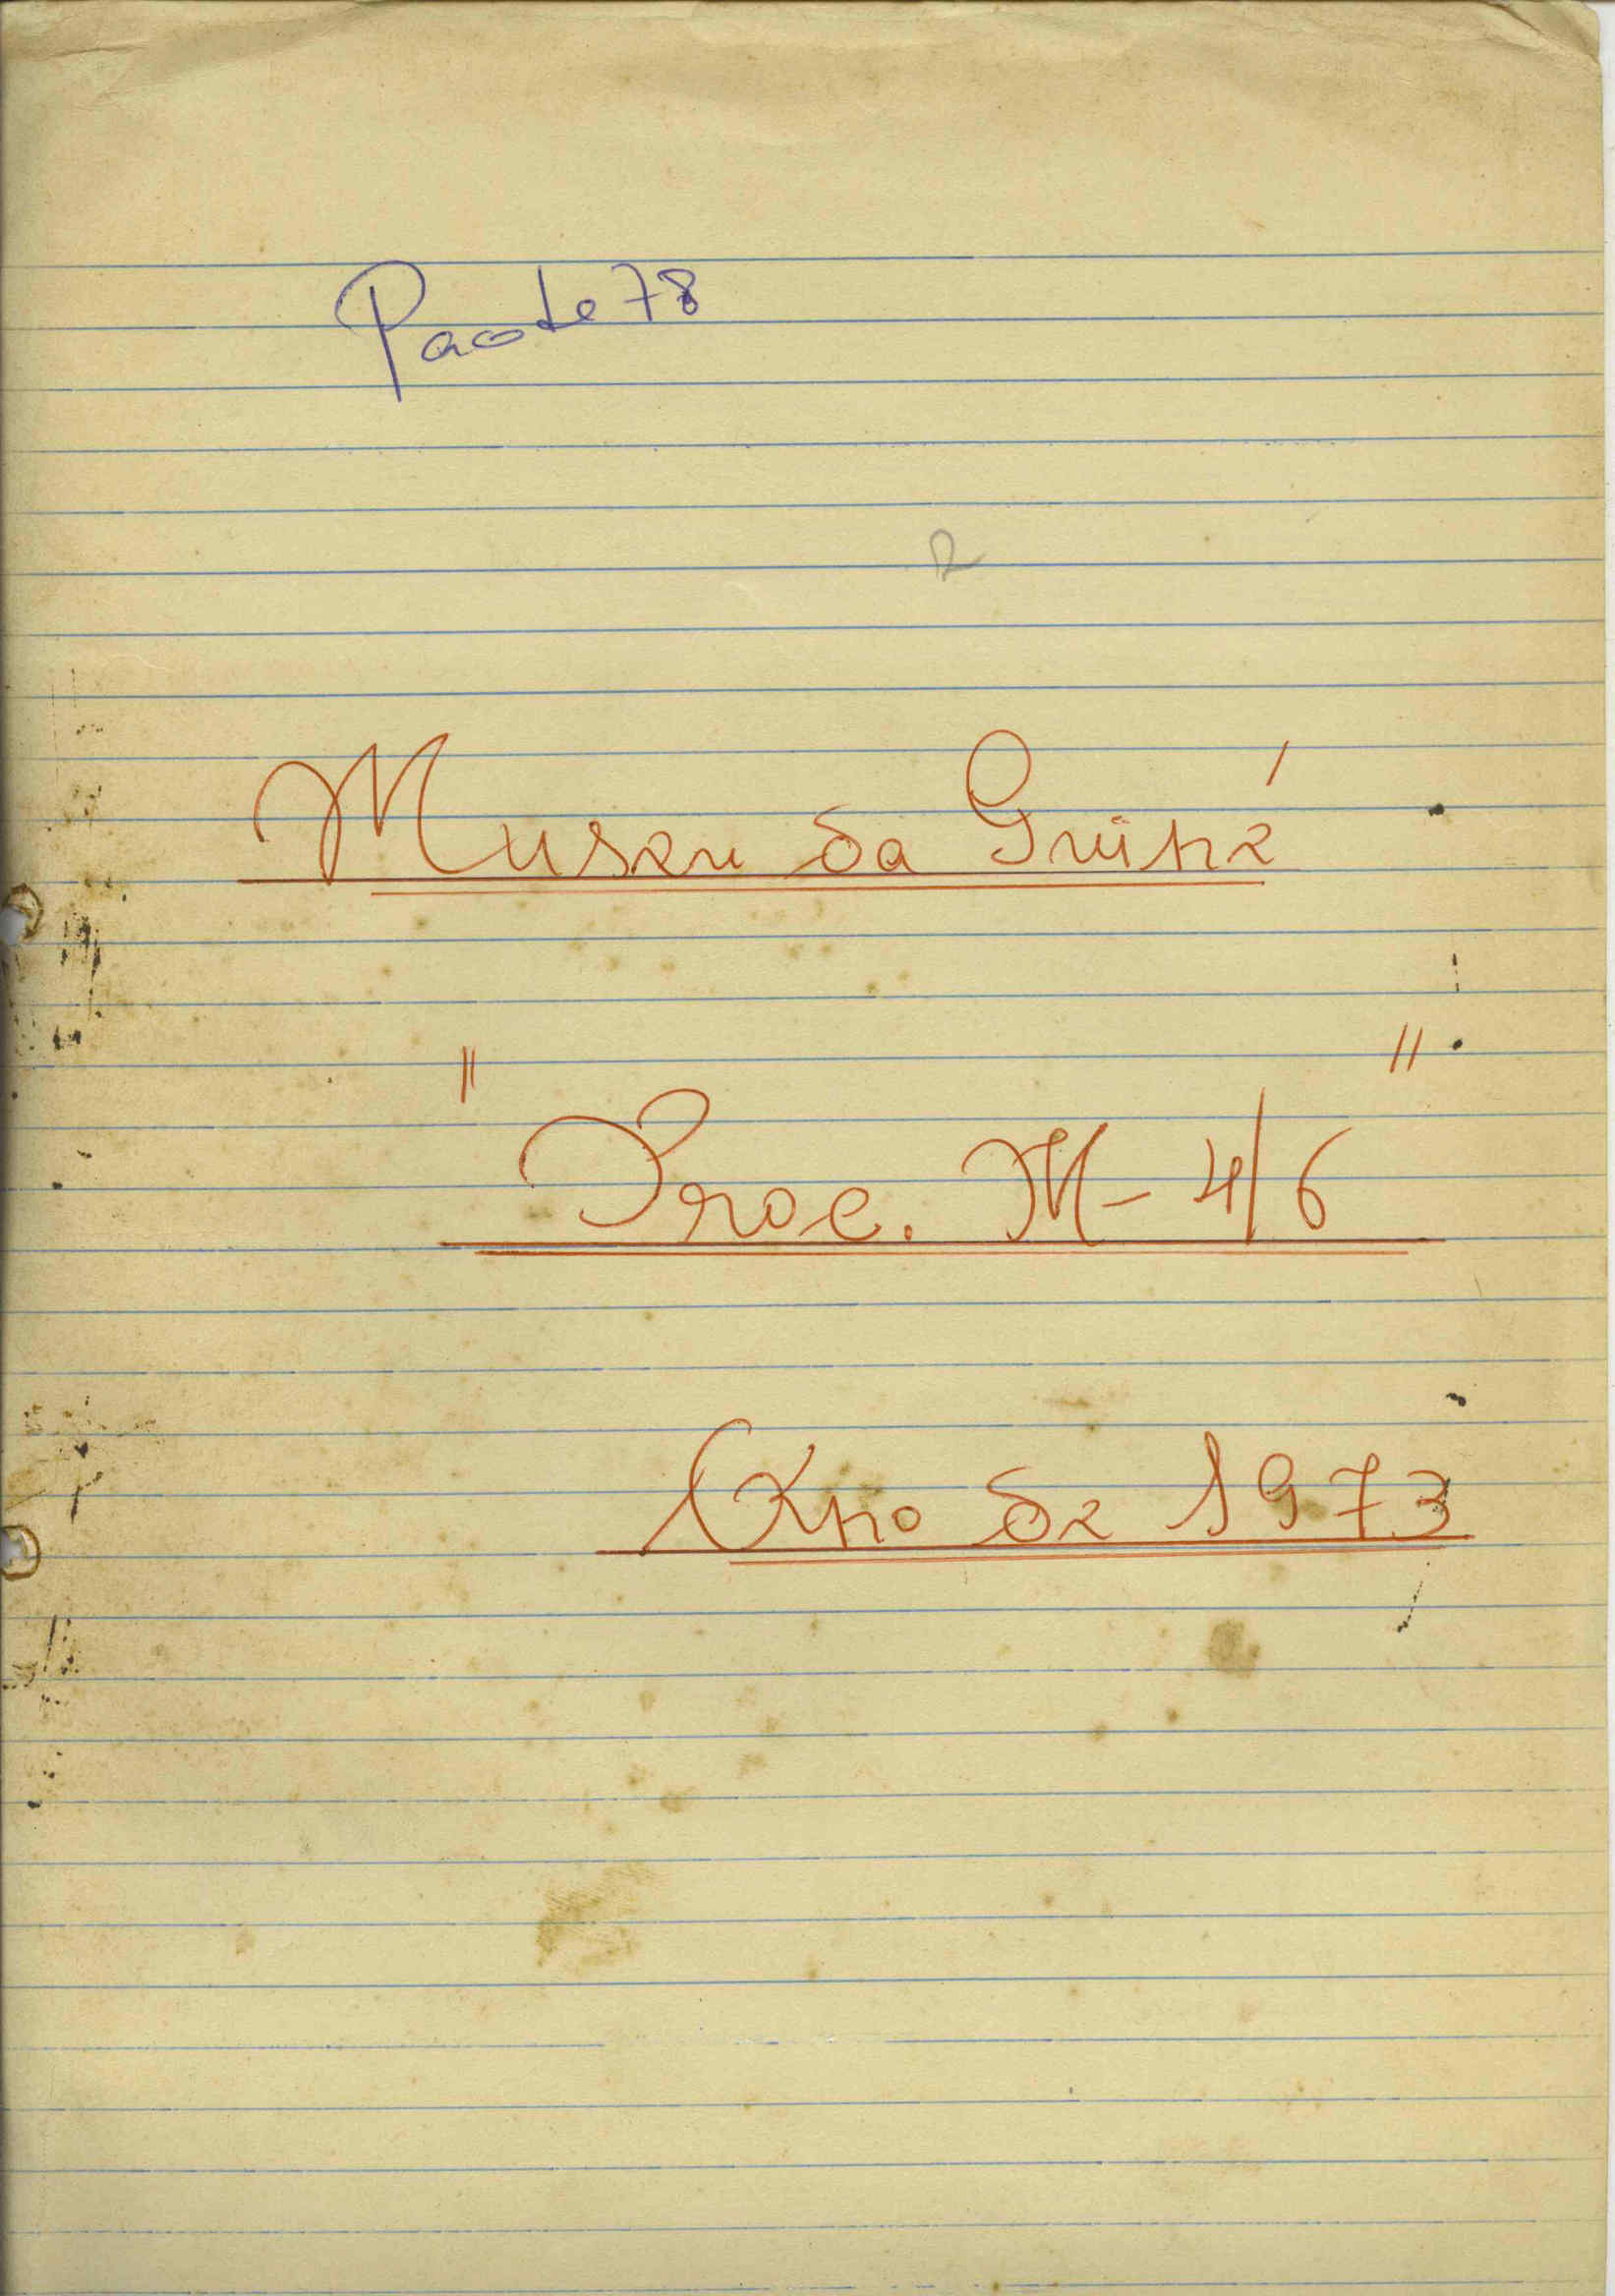 Pacote 78
Museu da Guiné
"Proc. M-4/6"
Ano de 1973